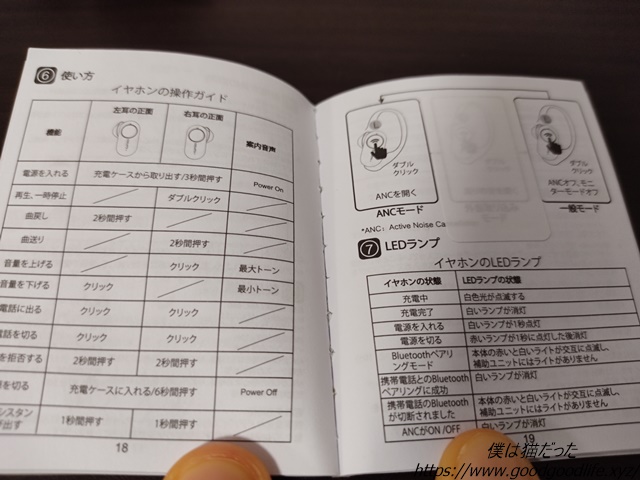 6 使い方
イヤホンの操作ガイド
機能 左耳の正面 右耳の正面 案内音声
電源を入れる 充電ケースから取り出す/3秒間押す Power On
再生、一時停止 ダブルクリック
曲戻し 2秒間押す
曲送り 2秒間押す
音量を上げる クリック 最大トーン
音量を下げる クリック 最小トーン
電話に出る クリック クリック
電話を切る クリック クリック
を拒否する 2秒間押す 2秒間押す
を切る 充電ケースに入れる/6秒間押す Power Off
シスタン
び出す 1秒間押す 1秒間押す
18
ダブル
クリック
ANCを開く
ANCモード
ダブル
クリック
ANCオフ、モニ
ターモードオフ
一般モード
*ANC: Active Noise Ca
7 LEDランプ
イヤホンのLEDランプ
イヤホンの状態 LEDランプの状態
充電中 白色光が点滅する
充電完了 白いランプが消灯
電源を入れる 白いランプが1秒点灯
電源を切る 赤いランプが1秒に点灯した後消灯
Bluetoothペアリ
ングモード 本体の赤いと白いライトが交互に点滅し、
補助ユニットにはライトがありません
携帯電話とのBluetooth
ペアリングに成功 白いランプが消灯
携帯電話のBluetooth
が切断されました 本体の赤いと白いライトが交互に点滅し、
補助ユニットにはライトがありません
ANCがON /OFF 白いランプが消灯
19
僕は猫だった
https://www.goodgoodlife.xyz